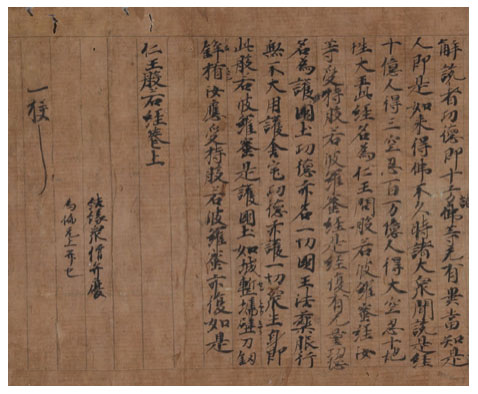 解説者功徳即十方諸佛等无有異當知是
人即是如来得佛不久時諸大衆聞説是經
十億人得三空忍百万億人得大空忍十地
性大王此經名為仁王問般若波羅蜜經汝
等受持般若波羅蜜經是經復有无量功徳
名為護國土功徳亦名一切國王法藥服行
无不大用護舍宅功徳亦護一切衆生身即
此般若波羅蜜是護國土如城塹墻壁刀釼
鉾楯汝應受持般若波羅蜜亦復如是
仁王般若經卷上
一校了
結縁衆僧